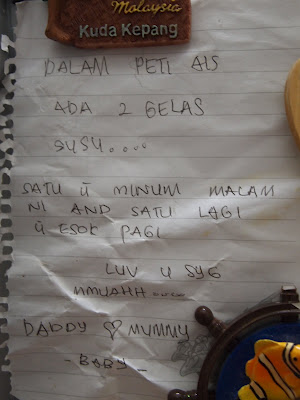 Malaysia
Kuda Kepang
DALAM PETI AIS
ADA 2 GELAS
SUSU....
SATU Ü MINUM MALAM
NI AND SATU LAGI
Ü ESOK PAGI
LUV U SYG
MMUAHH.....
DADDY ♡ MUMMY
- BABY -